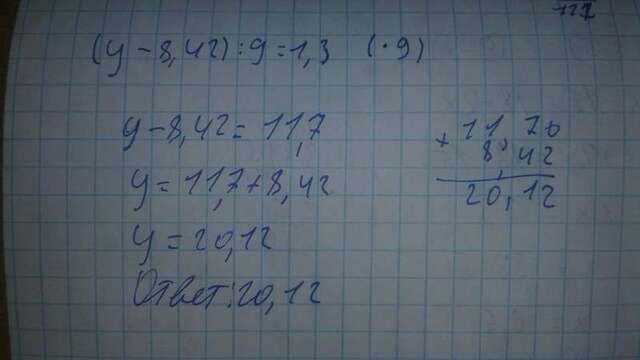 (y - 8,42) : 9 = 1,3 (· 9)
y - 8,42 = 11,7
y = 11,7 + 8,42
y = 20,12
Ответ: 20,12
+ 11,70
8,42
20,12